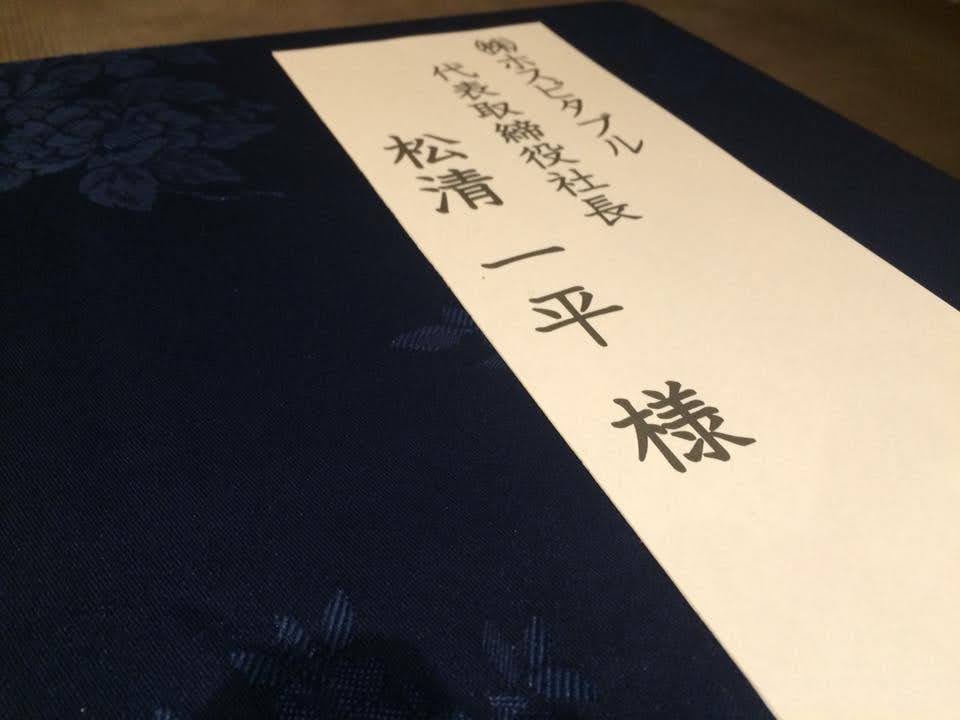 ㈱ホスピタブル
代表取締役社長
松清 一平 様